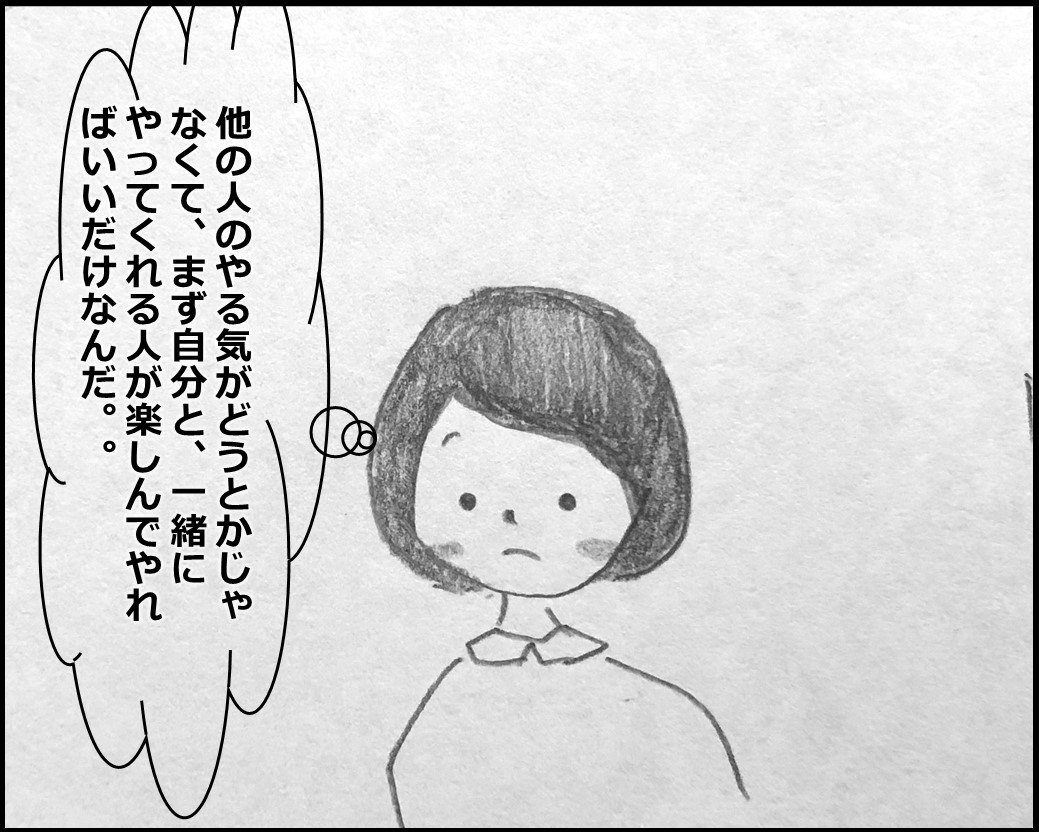 他の人のやる気がどうとかじゃ
なくて、まず自分と、一緒に
やってくれる人が楽しんでやれ
ばいいだけなんだ。。